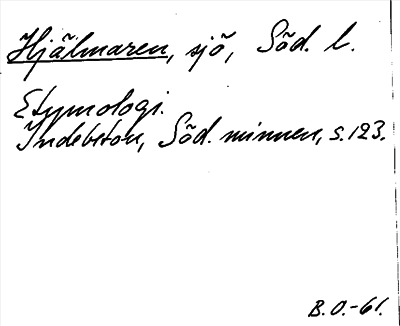 Hjälmaren, sjö, Söd. l.
Etymologi.
Indebetou, Söd. minnen, s. 123.
B. O.-61.